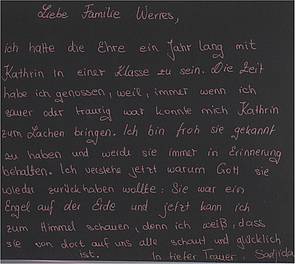 Liebe Familie Werres,
ich hatte die Ehre ein Jahr lang mit
Kathrin in einer Klasse zu sein. Die Zeit
habe ich genossen, weil, immer wenn ich
sauer oder traurig war konnte mich Kathrin
zum Lachen bringen. Ich bin froh sie gekannt
zu haben und werde sie immer in Erinnerung
behalten. Ich verstehe jetzt warum Gott sie
wieder zurückhaben wollte: Sie war ein
Engel auf der Erde und jetzt kann ich
zum Himmel schauen, denn ich weiß, dass
sie von dort auf uns alle schaut und glücklich
ist. In tiefer Trauer: